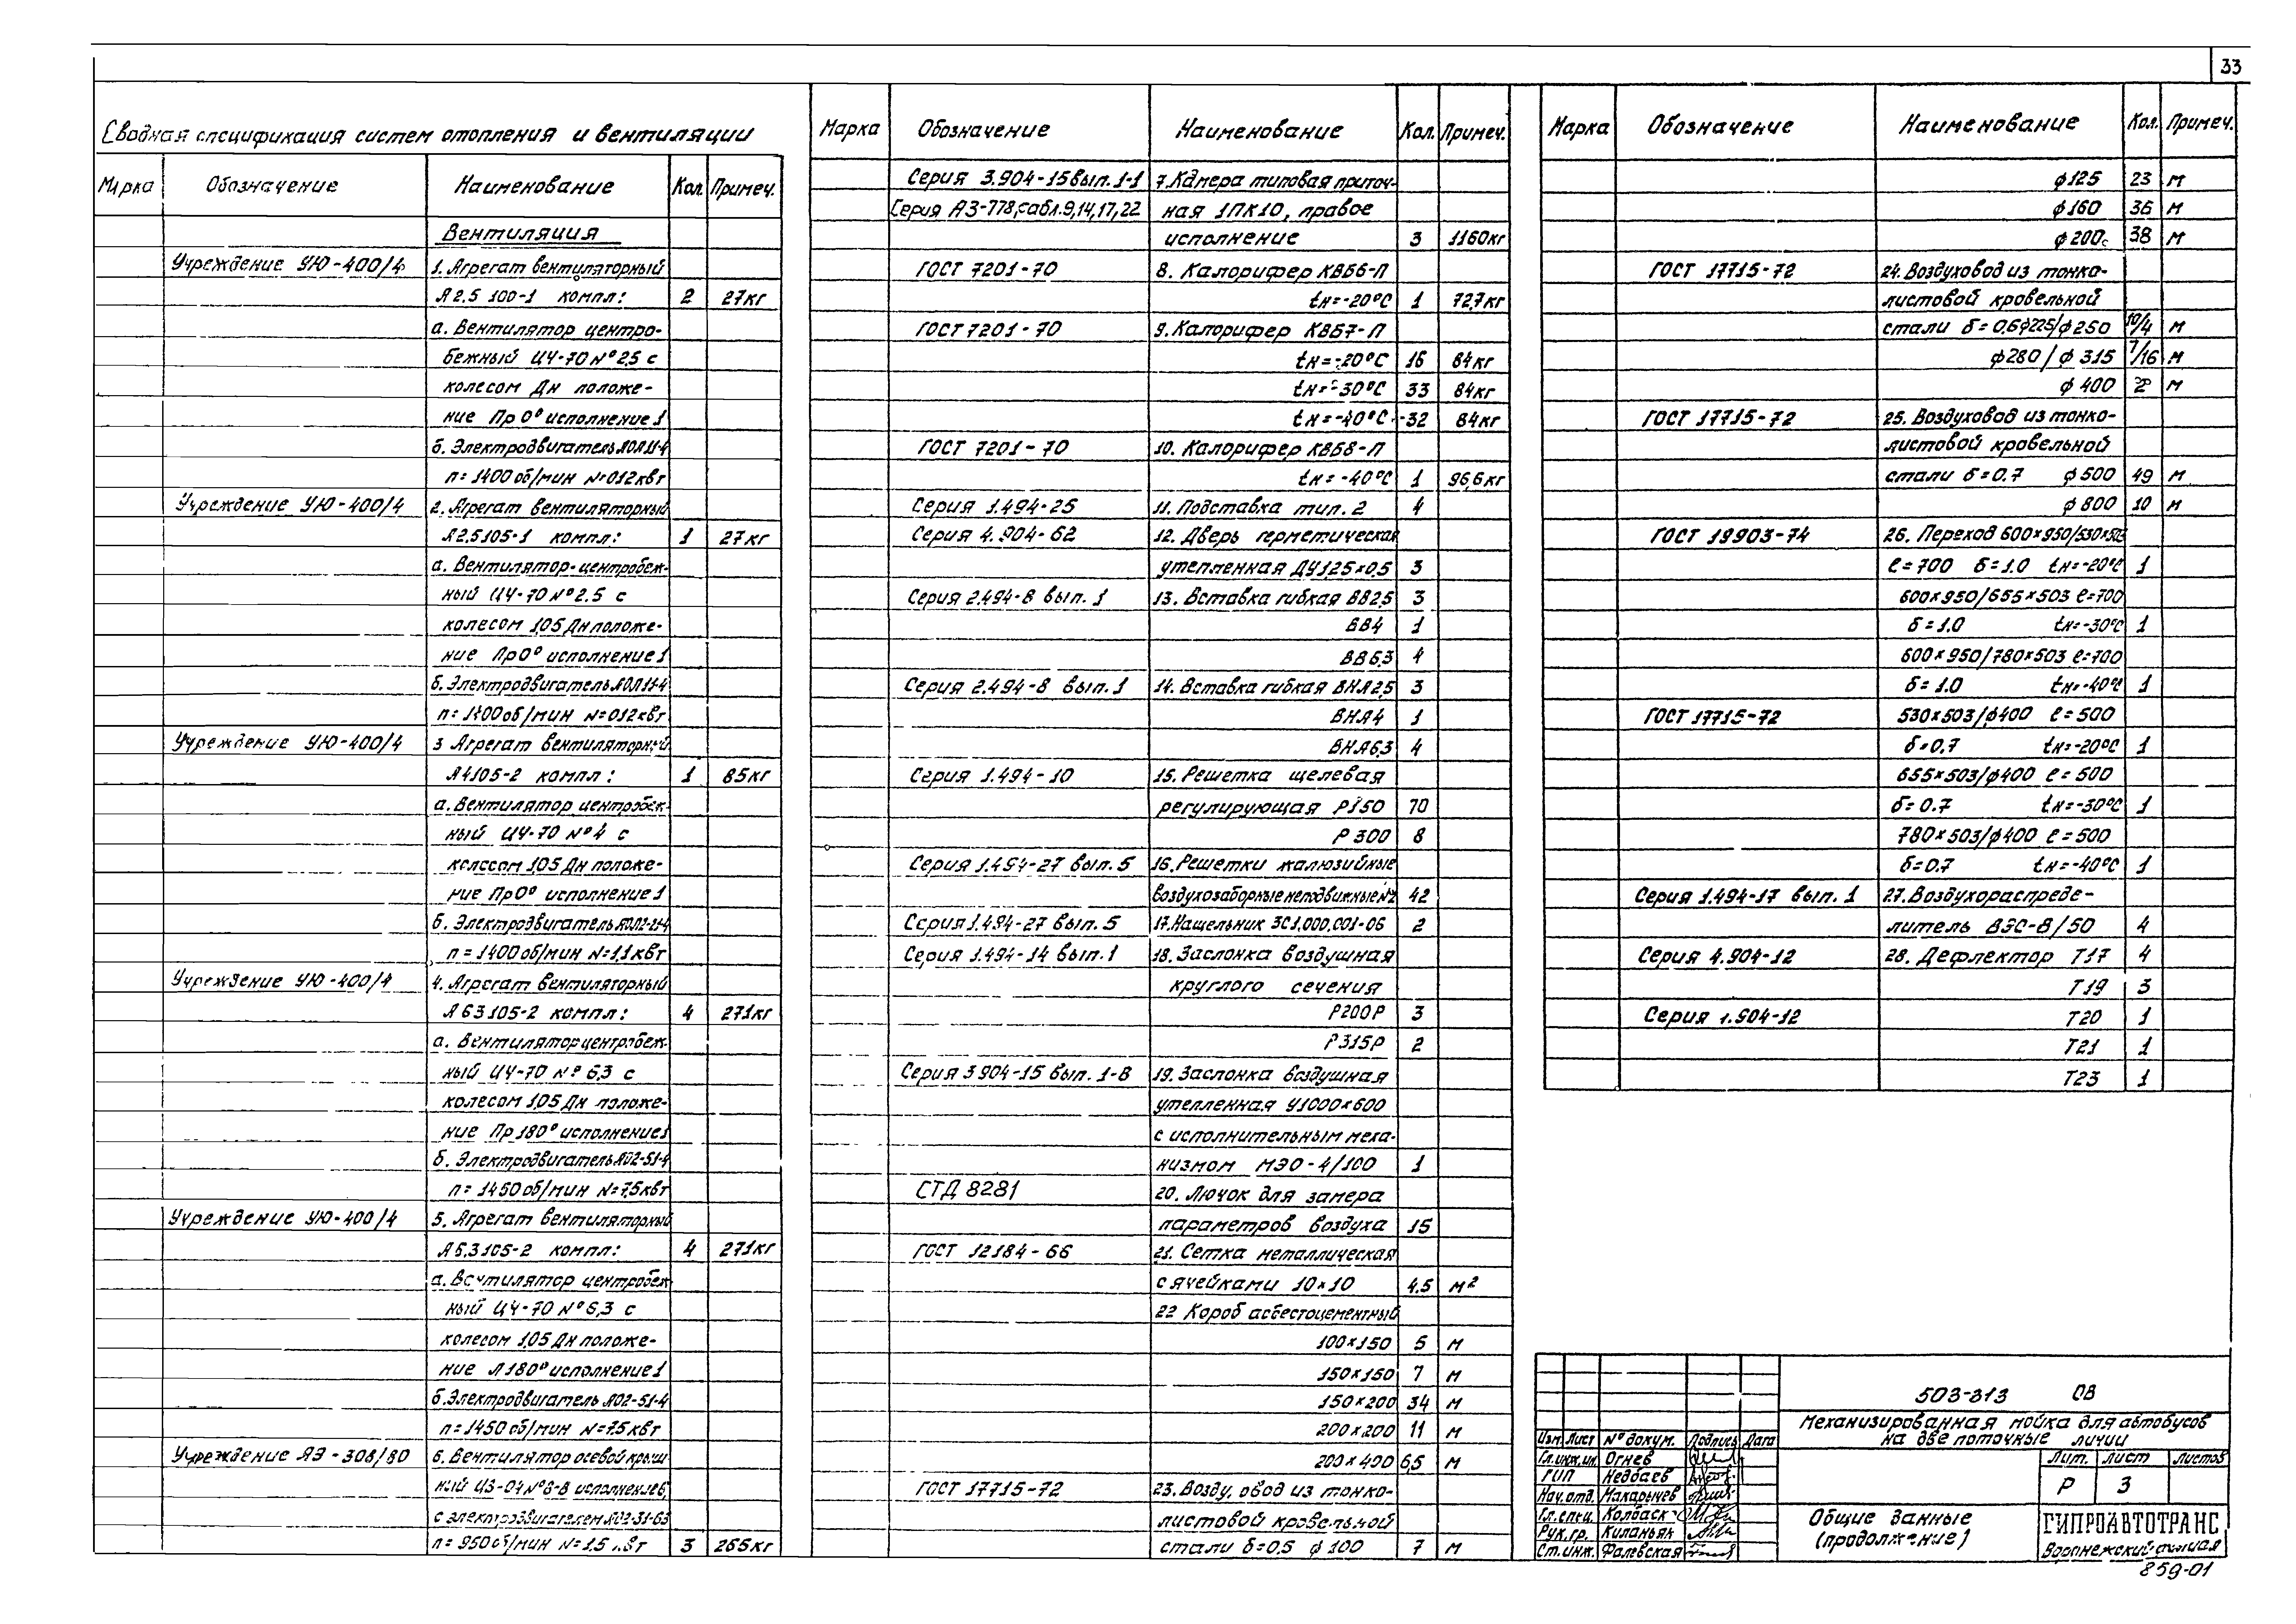 33
Сводная спецификация систем отопления и вентиляции
Марка Обозначение Наименование Кол. Примеч.
Вентиляция
Учреждение УЮ-400/4 1. Агрегат вентиляторный
А2.5 100-1 компл: 2 27кг
а. Вентилятор центро-
бежный Ц4-70 №2,5 с
колесом Дн положе-
ние Пр 0° исполнение 1
б. Электродвигатель АОЛ11-4
n=1400 об/мин N=0,12 квт
Учреждение УЮ-400/4 2. Агрегат вентиляторный
А2,5105-1 компл: 1 27кг
а. Вентилятор-центробеж-
ный Ц4-70 №2.5 с
колесом 1,05 Дн положе-
ние Пр 0° исполнение 1
б. Электродвигатель АОЛ11-4
n=1400 об/мин N=0,12 квт
Учреждение УЮ-400/4 3 Агрегат вентиляторный
А4105-2 компл: 1 85кг
а. Вентилятор центробеж-
ный Ц4-70 №4 с
колесом 1,05 Дн положе-
ние Пр 0° исполнение 1
б. Электродвигатель АОЛ2-21-4
n=1400 об/мин N=1,1 квт
Учреждение УЮ-400/4 4. Агрегат вентиляторный
А 63 105-2 компл: 4 271кг
а. Вентилятор центробеж-
ный Ц4-70 № 6,3 с
колесом 1,05 Дн положе-
ние Пр 180° исполнение 1
б. Электродвигатель АО2-51-4
n=1450 об/мин N=7,5 квт
Учреждение УЮ-400/4 5. Агрегат вентиляторный
А 6,3 105-2 компл: 4 271кг
а. Вентилятор центробеж
ный Ц4-70 № 6,3 с
колесом 1,05 Дн положе-
ние Л 180° исполнение 1
б. Электродвигатель АО2-51-4
n=1450 об/мин N=7,5 квт
Учреждение ЯЭ-308/80 6. Вентилятор осевой крыш
ный ЦЗ-04 №8-В исполнение 6,
с электродвигателем АО2-31-6З
n=950 об/мин N=1.5 квт 3 265кг
Марка Обозначение Наименование Кол. Примеч.
Серия 3.904-15 вып. 1-1 7. Камера типовая приточ-
Серия АЗ-778, сабл. 9,14,17,22 ная 1ПК10, правое
исполнение 3 1160кг
ГОСТ 7201-70 8. Калорифер КВБ6-П
tн=-20°С 1 72,7кг
ГОСТ 7201-70 9. Калорифер КВБ7-П
tн=-20°С 16 84кг
tн=-30°С 33 84кг
tн=-40°С 32 84кг
ГОСТ 7201-70 10. Калорифер КВБ8-П
tн=-40°С 1 96,6кг
Серия 1.494-25 11. Подставка тип. 2 4
Серия 4.904-62 12. Дверь герметическая
утепленная ДУ1,25×0,5 3
Серия 2.494-8 вып. 1 13. Вставка гибкая ВВ2,5 3
ВВ4 1
ВВ6,3 4
Серия 2.494-8 вып. 1 14. Вставка гибкая ВНА2,5 3
ВНА4 1
ВНА6,3 4
Серия 1.494-10 15. Решетка щелевая
регулирующая Р150 70
Р 300 8
Серия 1.494-27 вып. 5 16. Решетки жалюзийные
воздухозаборные неподвижные №2 42
Серия 1.494-27 вып. 5 17. Нащельник ЗС1,000,001-06 2
Серия 1.494-14 вып. 1 18. Заслонка воздушная
круглого сечения
Р200Р 3
Р315Р 2
Серия 3904-15 вып. 1-8 19. Заслонка воздушная
утепленная У1000×600
с исполнительным меха-
низмом МЭО-4/100 1
СТД 8281 20. Лючок для замера
параметров воздуха 15
ГОСТ 12184-66 21. Сетка металлическая
с ячейками 10×10 4,5 м²
22 Короб асбестоцементный
100×150 5 м
150×150 7 м
150×200 34 м
200×200 11 м
200×400 6,5 м
ГОСТ 17715-72 23. Воздуховод из тонко-
листовой кровельной
стали δ=0,5 ϕ 100 7 м
Марка Обозначение Наименование Кол. Примеч.
ϕ125 23 м
ϕ160 36 м
ϕ200 38 м
ГОСТ 17715-72 24. Воздуховод из тонко-
листовой кровельной
стали δ=0,6 ϕ225/ϕ250 10/4 м
ϕ280/ϕ 315 7/16 м
ϕ 400 2 м
ГОСТ 17715-72 25. Воздуховод из тонко-
листовой кровельной
стали δ=0.7 ϕ500 49 м
ϕ 800 10 м
ГОСТ 19903-74 26. Переход 600×950/530×503
ℓ=700 δ=1.0 tн=-20°С 1
600×950/655×503 ℓ=700
δ=1.0 tн=-30°С 1
600×950/780×503 ℓ=700
δ=1.0 tн=-40°С 1
ГОСТ 17715-72 530×503/ϕ400 ℓ=500
δ=0,7 tн=-20°С 1
655×503/ϕ400 ℓ=500
δ=0.7 tн=-30°С 1
780×503/ϕ400 ℓ=500
δ=0.7 tн=-40°С 1
Серия 1.494-17 вып. 1 27. Воздухораспреде-
литель ВЭС-В/50 4
Серия 4.904-12 28. Дефлектор Т17 4
Т19 3
Серия 1.904-12 Т20 1
Т21 1
Т23 1
503-313 ОВ
Механизированная мойка для автобусов
на две поточные линии
Изм. Лист № докум. Подпись Дата
Гл.инж.ин. Огнев
ГИП Недбаев
Нач.отд. Макарычев
Гл.спец. Колбаск
Рук.гр. Киланьяк
Ст.инж. Фалевская
Лит. Лист Листов
Р 3
Общие данные
(продолжение)
ГИПРОАВТОТРАНС
Воронежский филиал
859-01